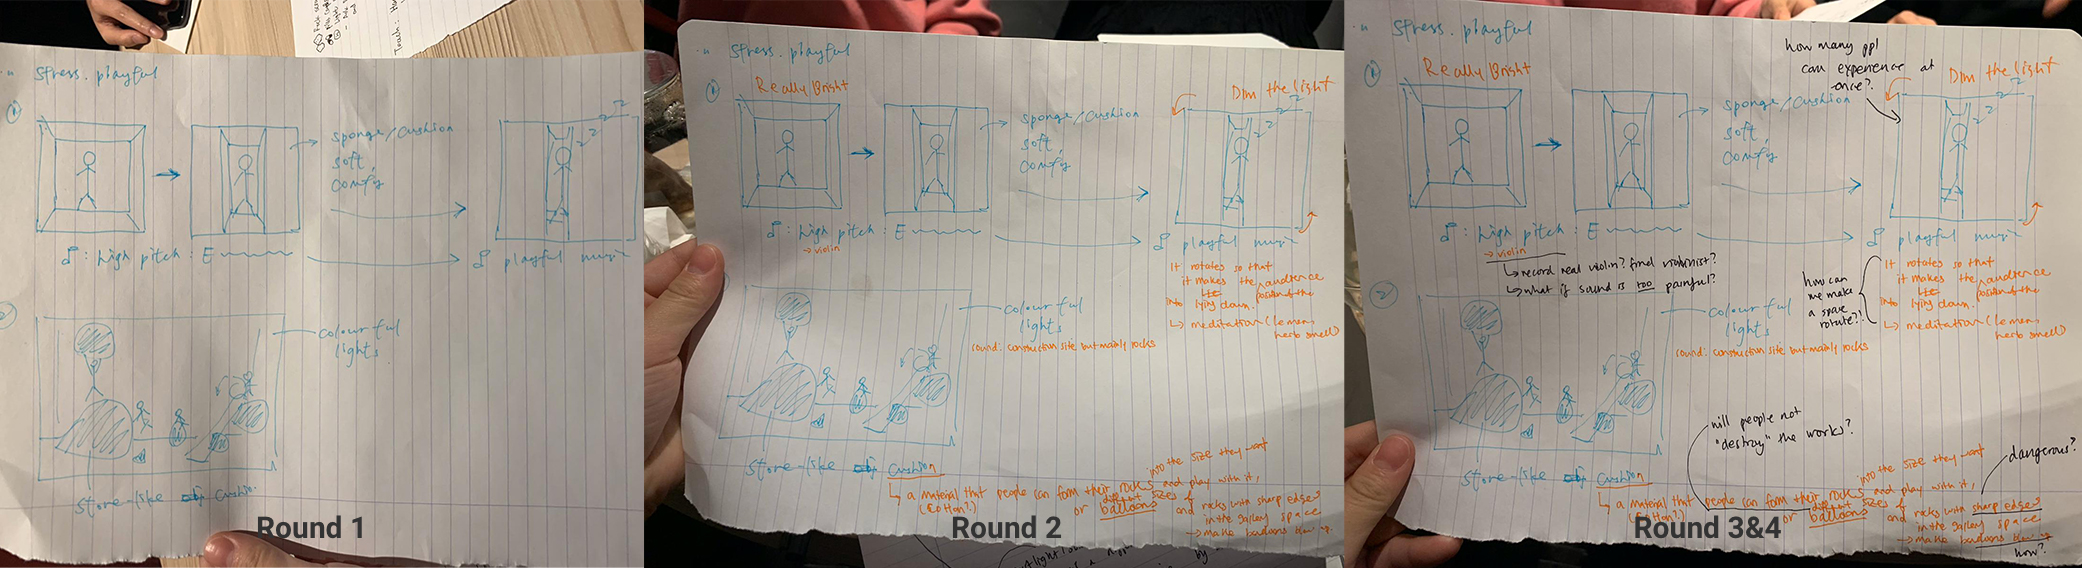 Stress. playful
①
sponge/cushion
soft
comfy
: high pitch : E
playful music
②
colourful
lights
Stone-like cushion
Round 1
Stress. playful
①
Really Bright
Dim the light
sponge/cushion
soft
comfy
: high pitch : E
→ violin
playful music
It rotates so that
it makes the audience
position of the
into lying down.
↳ meditation (lemon,
herb smell)
colourful
lights
sound: construction site but mainly rocks
Stone-like cushion
into the size they want
↳ a material that people can form their rocks and play with it,
(Cotton?)
different sizes of
or balloons and rocks with sharp edges
in the gallery space
→ make balloons
Round 2
Stress. playful
①
Really Bright
how many ppl
can experience at
once?
Dim the light
sponge/cushion
soft
comfy
: high pitch : E
→ violin
↳ record real violin? find violinist?
↳ what if sound is too painful?
playful music
how can
we make
a space
rotate?!
It rotates so that
it makes the audience
position of the
into lying down.
↳ meditation (lemon,
herb smell)
②
colourful
lights
sound: construction site but mainly rocks
will people not
"destroy" the works?
dangerous?
Stone-like cushion
into the size they want
↳ a material that people can form their rocks and play with it,
(Cotton?)
different sizes of
or balloons and rocks with sharp edges
in the gallery space
→ make balloons
how?
Round 3&4